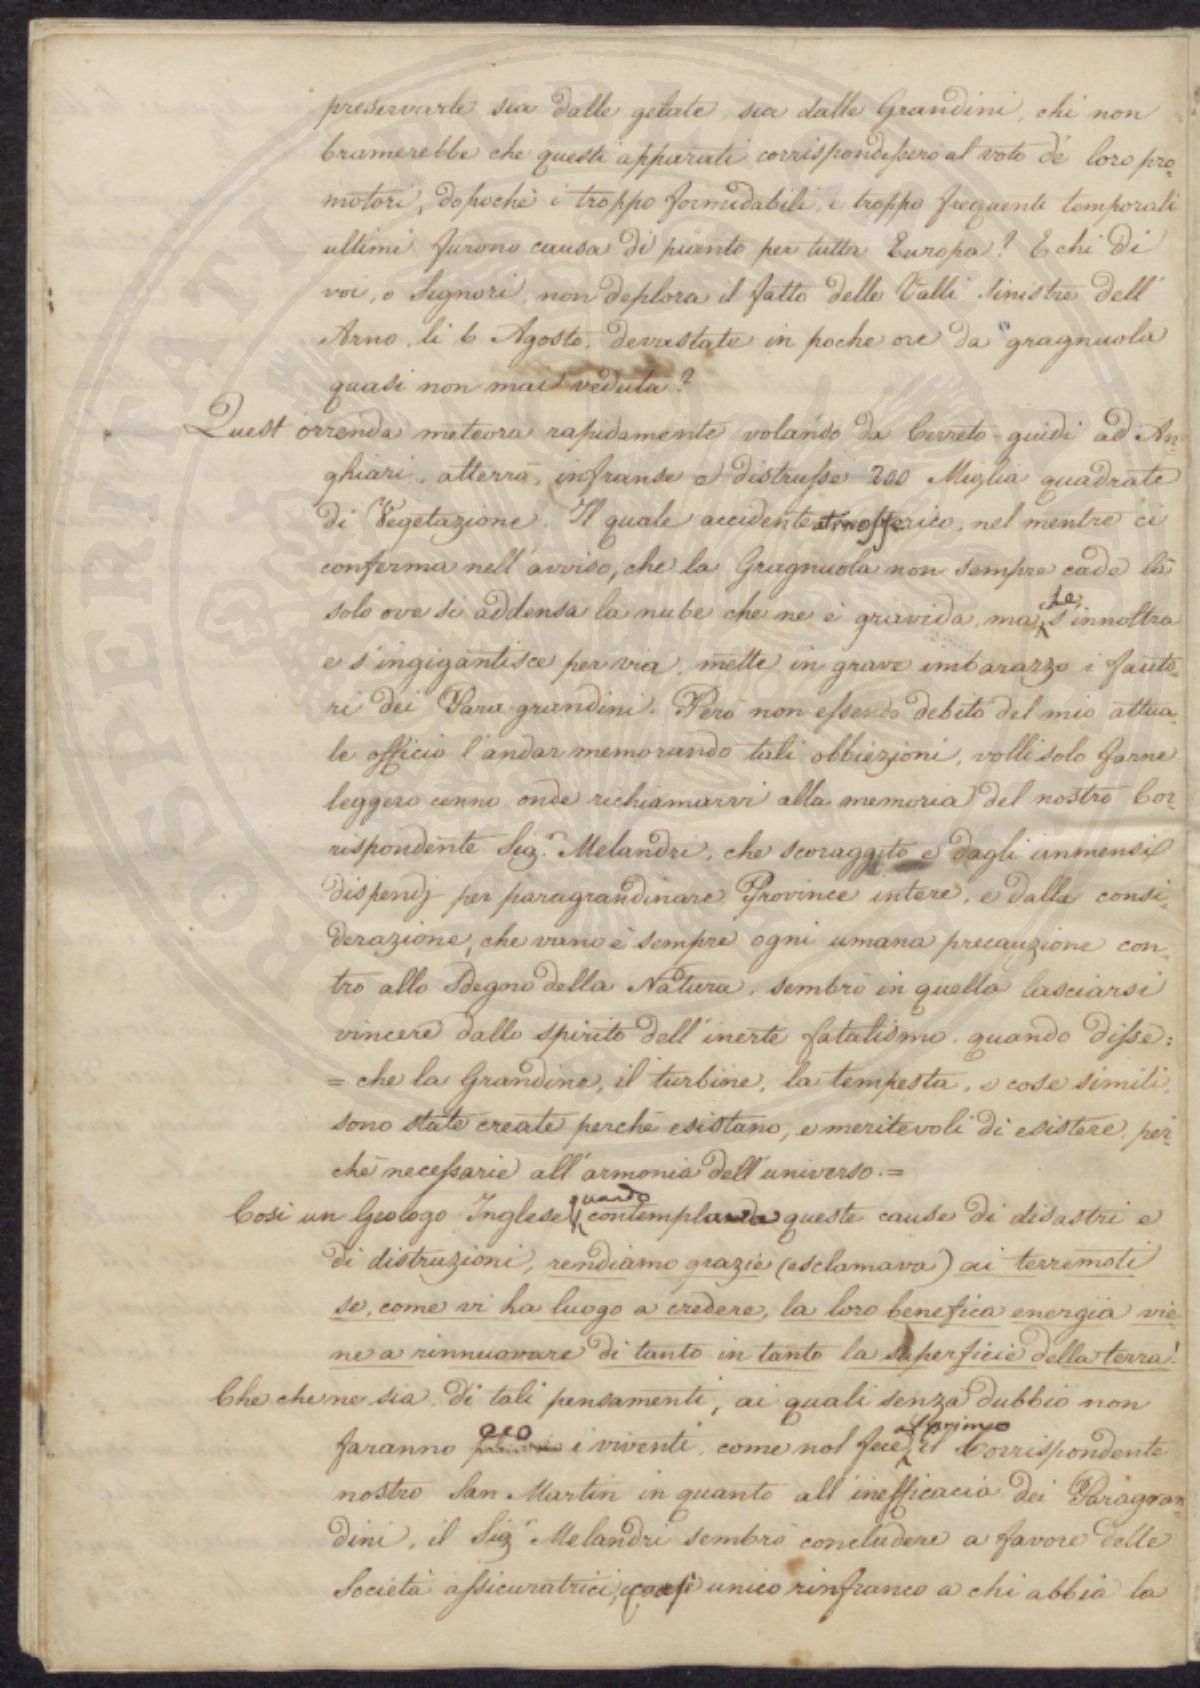 preservarle sia dalle gelate, sia dalle Grandini, chi non
bramerebbe che questi apparati corrispondessero al voto de' loro pro-
motori, dopochè i troppo formidabili, e troppo frequenti temporali
ultimi furono causa di pianto per tutta Europa? E chi di
voi, o Signori, non deplora il fatto delle Valli sinistre dell'
Arno, li 6 Agosto, devastate in poche ore da gragnuola
quasi non mai veduta?
Quest' orrenda meteora rapidamente volando da Cerreto-guidi ad An-
ghiari, atterrà, infranse e distrusse 200 Miglia quadrate
di Vegetazione. Il quale accidente atmosferico, nel mentre ci
conferma nell'avviso, che la Gragnuola non sempre cade là
solo ove si addensa la nube che ne è gravida, ma che s'innoltra
e s'ingigantisce per via, mette in grave imbarazzo i fauto-
ri dei Para grandini. Però non essendo debito del mio attua-
le officio l'andar memorando tali obbiezioni, volli solo farne
leggero cenno onde richiamarvi alla memoria del nostro Cor-
rispondente Sig.r Melandri, che scoraggito e dagli immensi
dispendj per paragrandinare Province intere, e dalla consi-
derazione, che vano è sempre ogni umana precauzione con-
tro allo Sdegno della Natura, sembrò in quella lasciarsi
vincere dallo spirito dell'inerte fatalismo, quando disse:
= che la Grandine, il turbine, la tempesta, e cose simili,
sono state create perchè esistano, e meritevoli di esistere, per-
chè necessarie all'armonia dell'universo. =
Così un Geologo Inglese quando contemplava queste cause di disastri e
di distruzioni, rendiamo grazie (esclamava) ai terremoti
se, come vi ha luogo a credere, la loro benefica energia vie-
ne a rinnuovare di tanto in tanto la superficie della terra!
Che che ne sia di tali pensamenti, ai quali senza dubbio non
faranno eco i viventi, come nol fece, il Corrispondente
nostro San Martin in quanto all'inefficacia dei Paragran-
dini, il Sig.r Melandri sembrò concludere a favore delle
Società assicuratrici, quasi unico rinfranco a chi abbia la